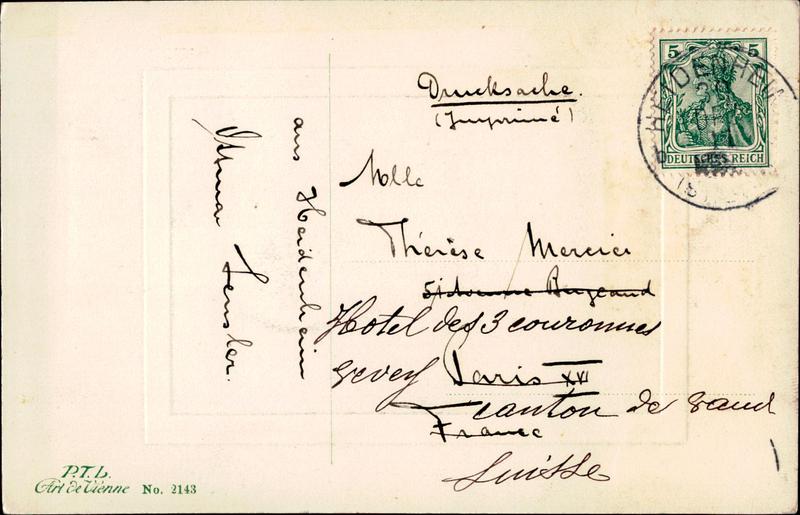 Drucksache.
(Imprimé)
5 5
HEIDENHEIM
DEUTSCHES REICH
Mlle
Thérèse Mercier
51 Avenue Bugeaud
Hotel des 3 couronnes
Vevey Paris XVI
canton de Vaud
France
Suisse
aus Heidenheim
P.T.L.
Art de Vienne No. 2143